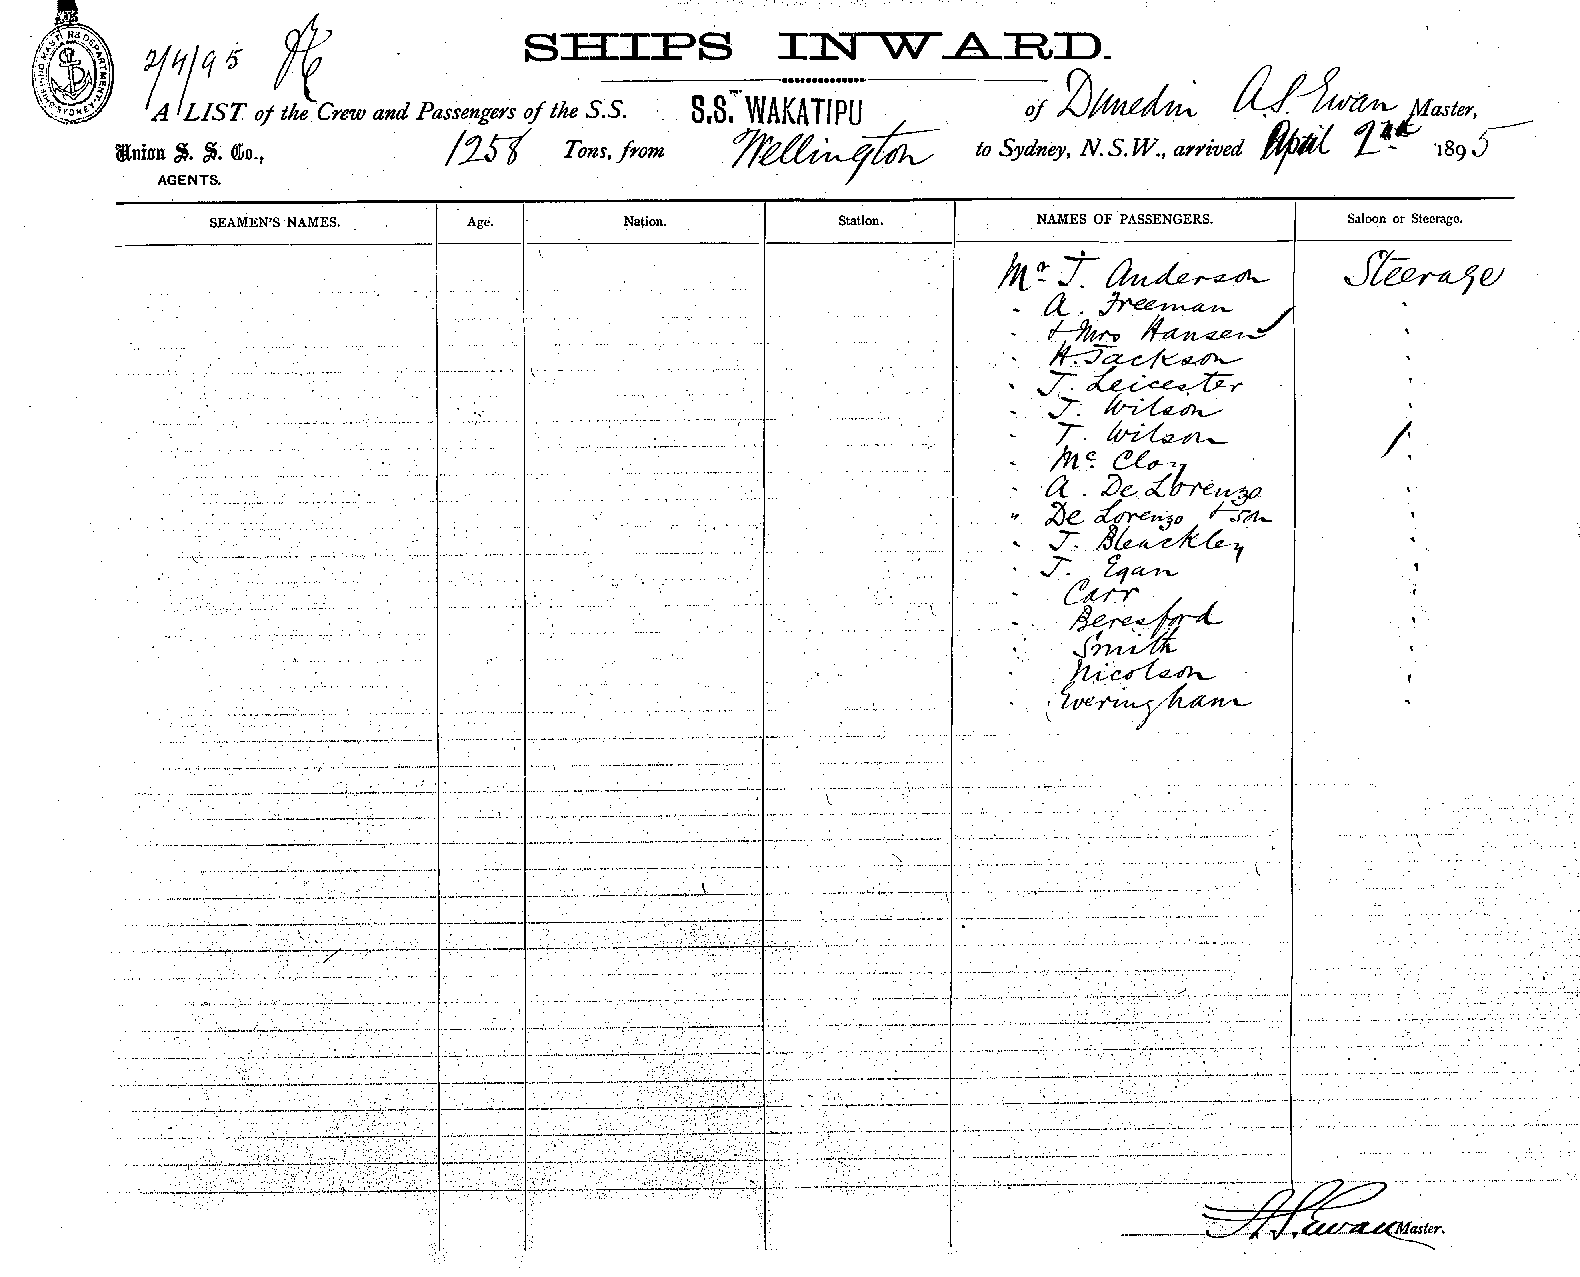 2/4/95
SHIPS INWARD.
A LIST of the Crew and Passengers of the S.S. S.S. WAKATIPU of Dunedin A.S. Ewan Master,
Union S. S. Co., 1258 Tons, from Wellington to Sydney, N.S.W., arrived April 2nd 1895
AGENTS.
SEAMEN'S NAMES. Age. Nation. Station. NAMES OF PASSENGERS. Saloon or Steerage.
Mr J. Anderson Steerage
" A. Freeman "
" + Mrs Hansen "
" H. Jackson "
" J. Leicester "
" J. Wilson "
" T. Wilson "
" Mc Cloy "
" A. De Lorenzo "
" De Lorenzo + son "
" J. Bleackley "
" J. Egan "
" Carr "
" Beresford "
" Smith "
" Nicolson "
" Everingham "
A.S. Ewan Master.